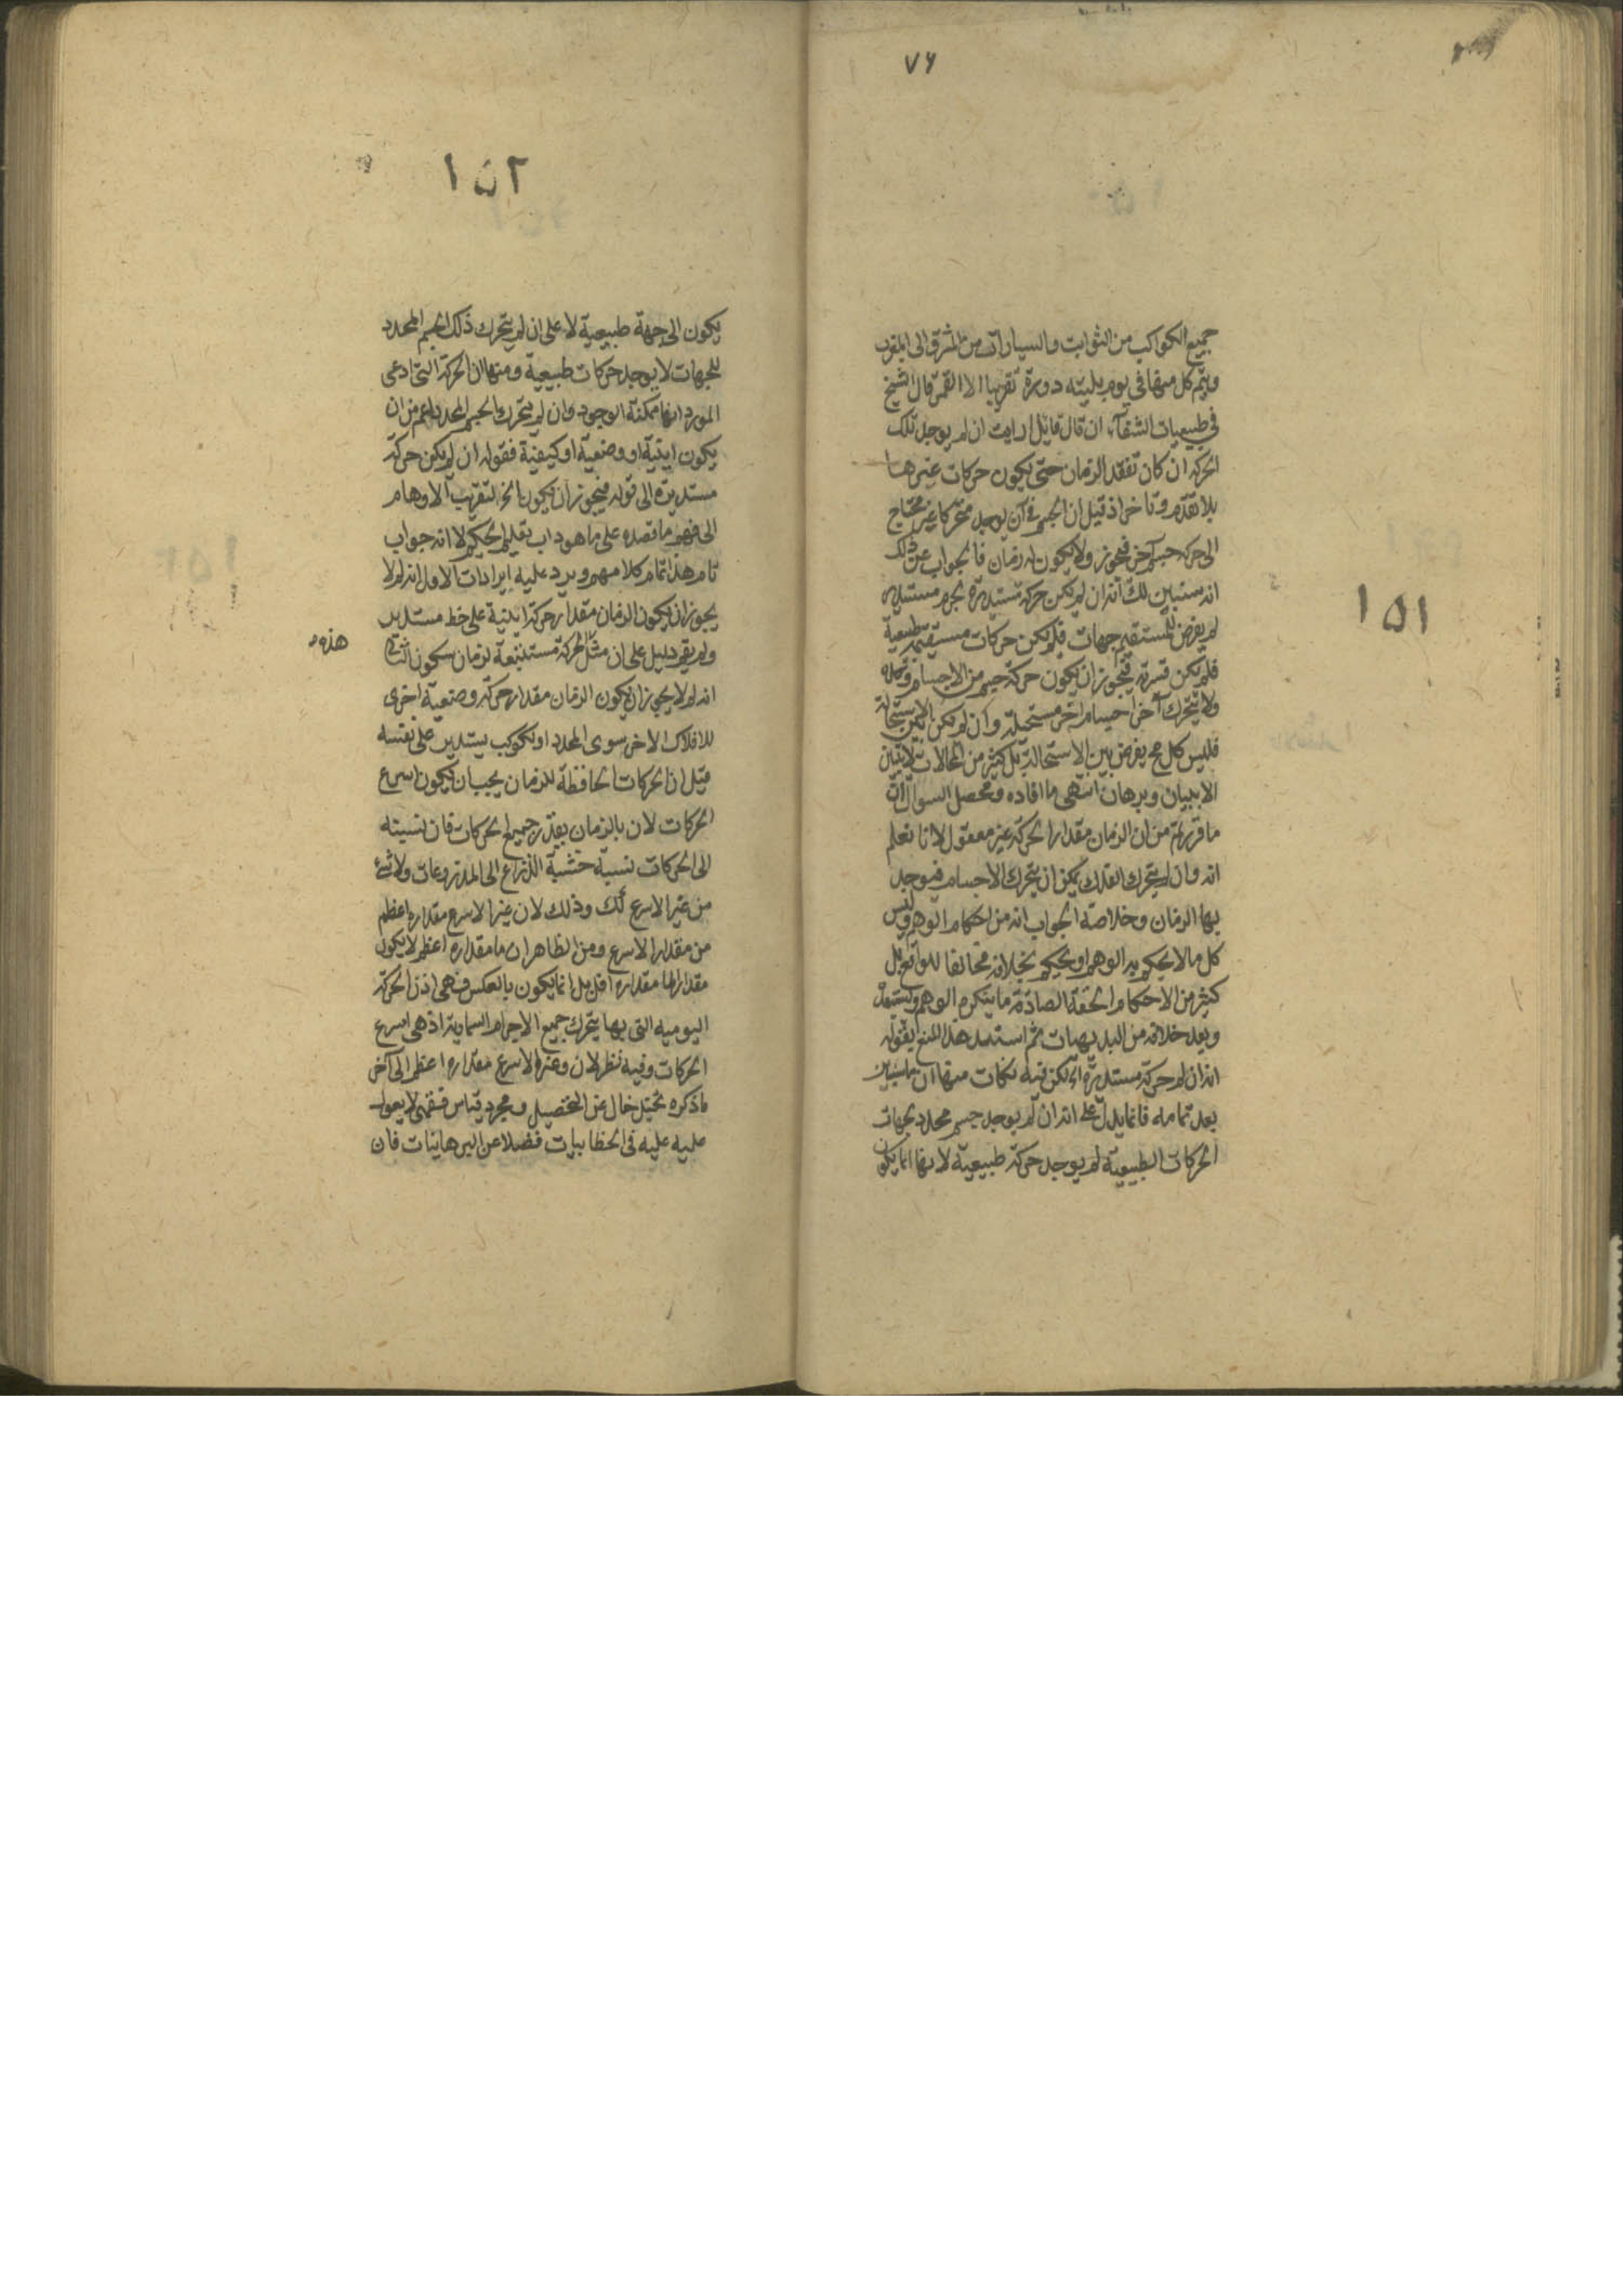 ٧٦
١٥١
جميع الكواكب من الثوابت والسيارات من المشرق الى المغرب
ويتم كل منها في يوم بليلته دورة تقريبا الا القمر قال الشيخ
في طبيعيات الشفاء ان قال قائل ارايت ان لم يوجد تلك
الحركة ان كان تفقد الزمان حتى يكون حركات غيرها
بلا تقدم وتاخر اذ قيل ان الجسم في ان يوجد متحركا غير محتاج
الى حركة جسم آخر فيجوز ولا يكون له زمان فالجواب عن ذلك
انه سنبين لك انه ان لم يكن حركة مستديرة بجرم مستدير
لم يفرض للمستقيم جهات فلم يكن حركات مستقيمة طبيعية
فلم يكن قسرية فيجوز ان يكون حركة جسم من الاجسام وحده
ولا يتحرك آخر اجسام اخر مستحيلة وان لم يكن بين الاستحالة
فليس كل مح يفرض بين الاستحالة بل كثير من المحالات لا تبين
الا ببيان وبرهان انتهى ما افاده ومحصل السوال ان
ما قررتم من ان الزمان مقدار الحركة غير معقول لانا نعلم
انه وان لم يتحرك الفلك يمكن ان يتحرك الاجسام فيوجد
بها الزمان وخلاصة الجواب انه من احكام الوهم وليس
كل ما لا يحكم به الوهم او يحكم بخلافه مخالفا للواقع بل
كثير من الاحكام الحقة الصادقة ما ينكره الوهم ويستبعد
ويعد خلافه من البديهيات ثم استسد هذا المنع بقوله
انه ان لم حركة مستديرة الخ لكن فيه نكات منها ان ما سنبين
بعد تمامه فانما يدل على انه ان لم يوجد جسم محدد لجهات
الحركات الطبيعية لم يوجد حركة طبيعية لانها انما يكون
١٥٢
يكون الى جهة طبيعية لا على ان لم يتحرك ذلك الجسم المحدد
للجهات لا يوجد حركات طبيعية ومنها ان الحركة التي ادعى
المورد انها ممكنة الوجود وان لم يتحرك الجسم المحدد اعم من ان
يكون اينية او وضعية او كيفية فقوله ان لم يكن حركة
مستديرة الى قوله فيجوز ان يكون الخ لتقريب الاوهام
الى فهم ما قصده على ما هو داب تعليم الحكيم لا انه جواب
تام هذا تمام كلامهم ويرد عليه ايرادات الاول انه لم لا
يجوز ان يكون الزمان مقدار حركة اينية على خط مستدير
ولم يقم دليل على ان مثل الحركة مستتبعة لزمان سكون الثاني
هذه
انه لم لا يجوز ان يكون الزمان مقدار حركة وضعية اخرى
للافلاك الاخر سوى المحدد او لكوكب يستدير على نفسه
قيل ان الحركات الحافظة للزمان يجب ان يكون اسرع
الحركات لان بالزمان يقدر جميع الحركات فان نسبته
الى الحركات نسبة خشبة الذراع الى المذروعات ولا شئ
من غير الاسرع كك وذلك لان غير الاسرع مقداره اعظم
من مقدار الاسرع ومن الظاهر ان ما مقداره اعظم لا يكون
مقدارا لما مقداره اقل بل انما يكون بالعكس فهي اذن الحركة
اليومية التي بها يتحرك جميع الاجرام السماوية اذ هي اسرع
الحركات وفيه نظر لان وغير الاسرع مقداره اعظم الى آخر
ما ذكره تخيل خال عن التحصيل ومجرد قياس فقهي لا يعول
عليه عليه في الخطابيات فضلا عن البرهانيات فان